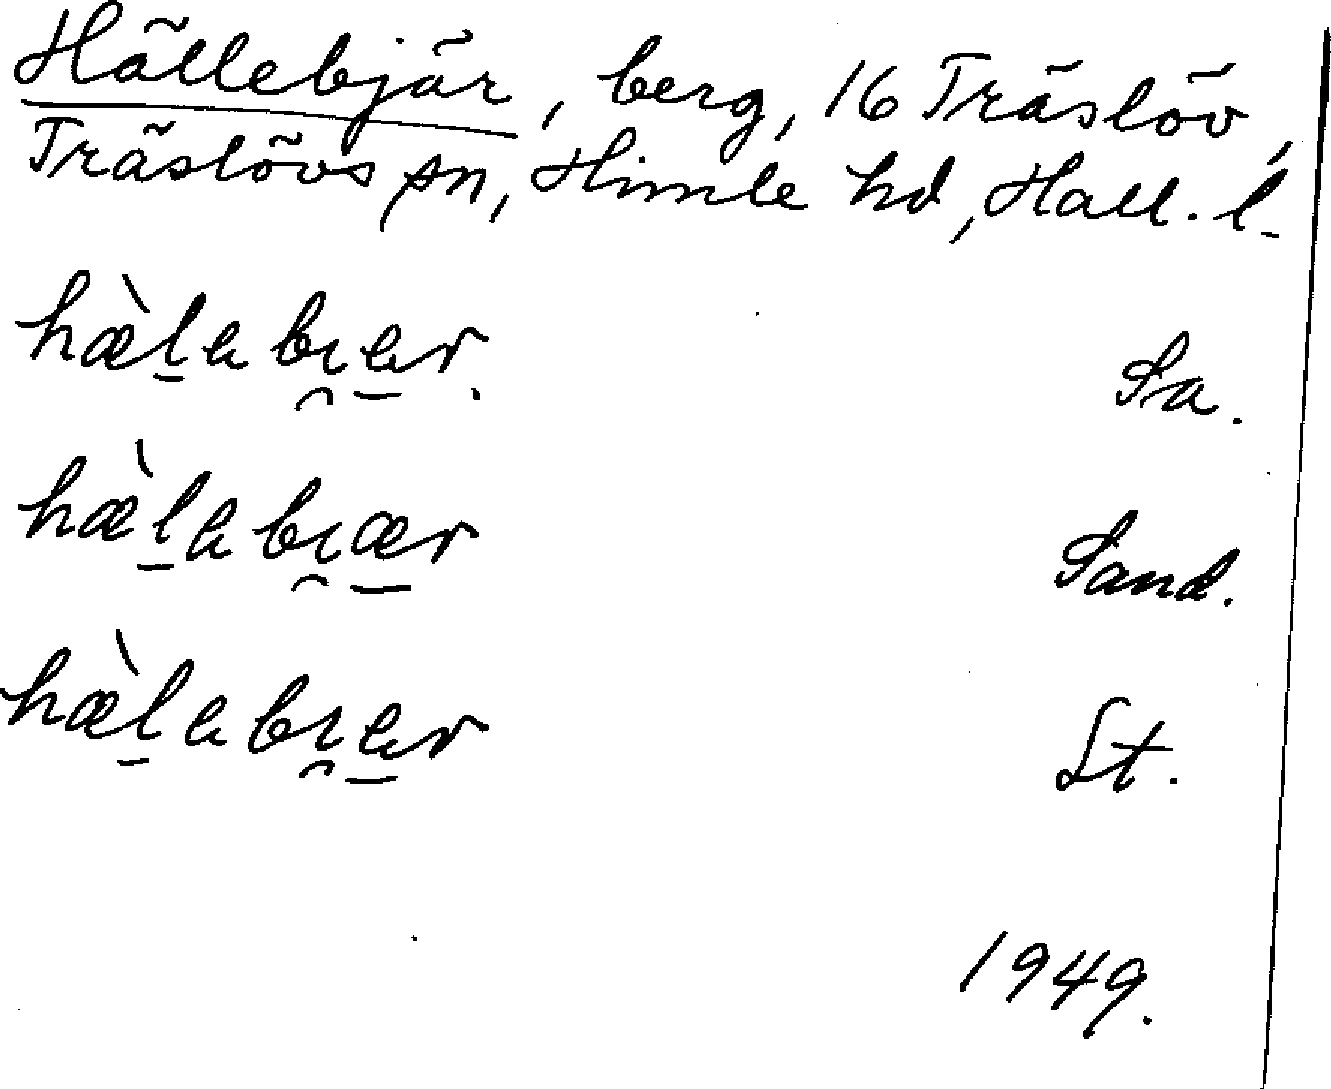 Hällebjär, berg, 16 Träslöv,
Träslövs sn, Himle hd, Hall. l.
hæ̀l̠ebɪ̯e̠r. Sa.
hæ̀l̠ebɪ̯æ̠r Sand.
hæ̀l̠ebɪ̯e̠r St.
1949.